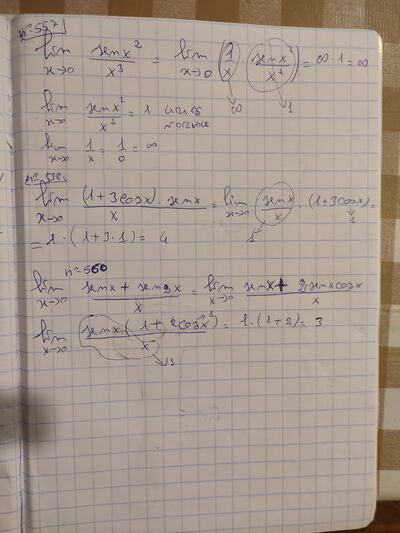 n°557
lim x→0 senx²/x³ = lim x→0 (1/x · senx²/x²) = ∞·1=∞
∞ 1
lim x→0 senx²/x² = 1 LIMITE
NOTEVOLE
lim x→0 1/x = 1/0 = ∞
n°558
lim x→0 (1+3cosx)·senx/x = lim x→0 senx/x · (1+3cosx)=
1 1
= 1·(1+3·1)= 4
n°560
lim x→0 senx+sen2x/x = lim x→0 senx+2senxcosx/x
lim x→0 senx(1+2cosx)/x = 1·(1+2)=3
1
1